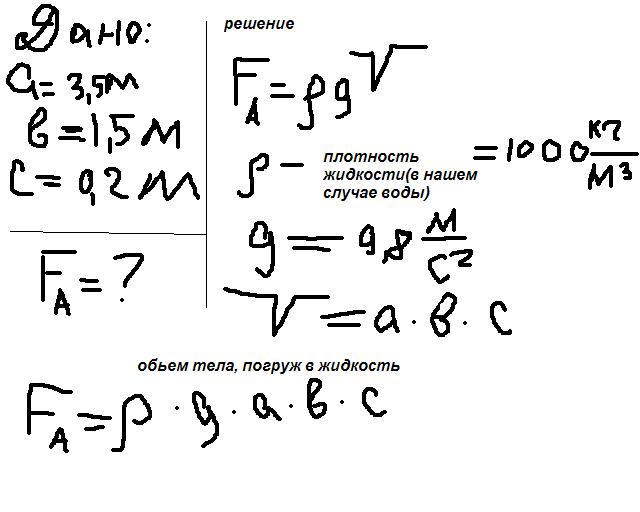 Дано:
a = 3,5м
в = 1,5 м
с = 0,2 м
F_A = ?
решение
F_A = ρ g V
ρ – плотность
жидкости(в нашем
случае воды)
= 1000 кг/м³
g = 9,8 м/с²
V = а · в · с
обьем тела, погруж в жидкость
F_A = ρ · g · а · в · с